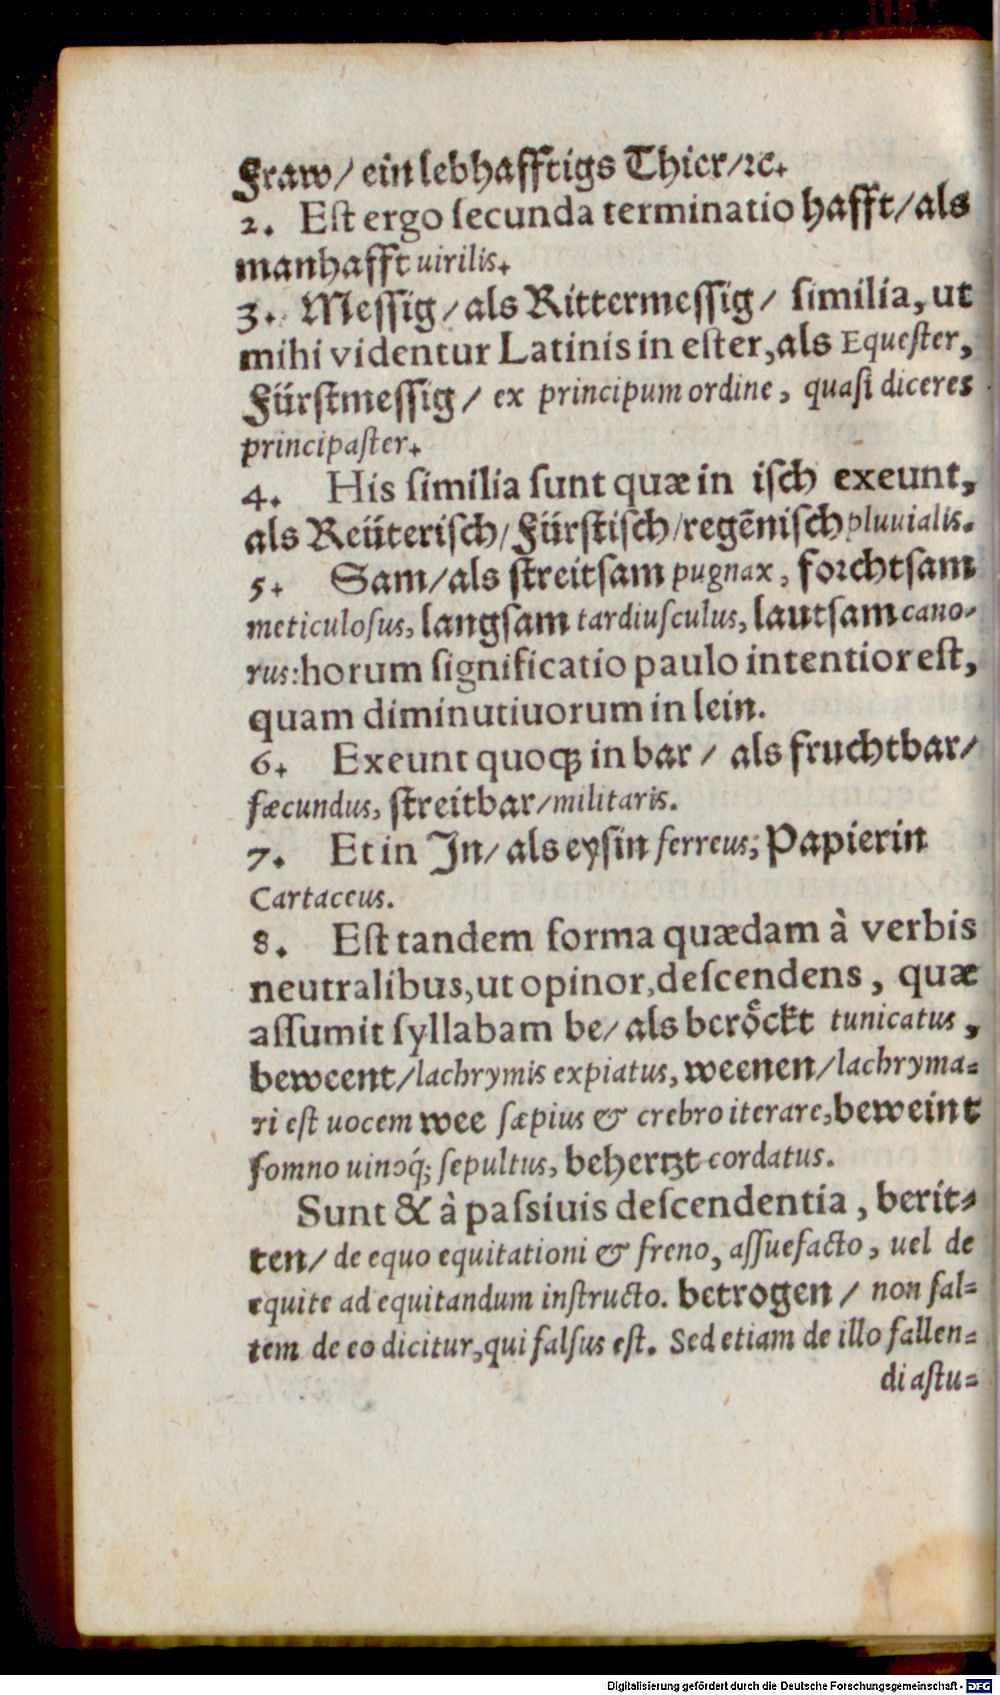 Fraw/ ein lebhafftigs Thier/ꝛc.
2. Eſt ergo ſecunda terminatio hafft/als
manhafft uirilis.
3. Meſſig/als Rittermeſſig/ ſimilia, ut
mihi videntur Latinis in eſter,als Equeſter,
Fürſtmeſſig/ ex principum ordine, quaſi diceres
principaſter.
4. His ſimilia ſunt quæ in iſch exeunt,
als Reüteriſch/Fürſtiſch/regẽniſch pluuialis.
5. Sam/als ſtreitſam pugnax, foꝛchtſam
meticuloſus, langſam tardiuſculus, lautſam cano-
rus: horum ſignificatio paulo intentior eſt,
quam diminutiuorum in lein.
6. Exeunt quoqꝫ in bar / als fruchtbar/
fæcundus, ſtreitbar/militaris.
7. Et in Jn/als eyſin ferreus; Papierin
Cartaceus.
8. Eſt tandem forma quædam à verbis
neutralibus,ut opinor,deſcendens, quæ
aſſumit ſyllabam be/als beroͤckt tunicatus,
beweent/lachrymis expiatus, weenen/lachryma-
ri eſt uocem wee ſæpius & crebro iterare,beweint
ſomno uinoq́; ſepultus, behertzt cordatus.
Sunt & à paſsiuis deſcendentia, berit-
ten/ de equo equitationi & freno, aſſuefacto, uel de
equite ad equitandum inſtructo. betrogen/ non ſal-
tem de eo dicitur,qui falſus eſt. Sed etiam de illo fallen-
di aſtu-
Digitalisierung gefördert durch die Deutsche Forschungsgemeinschaft - DFG